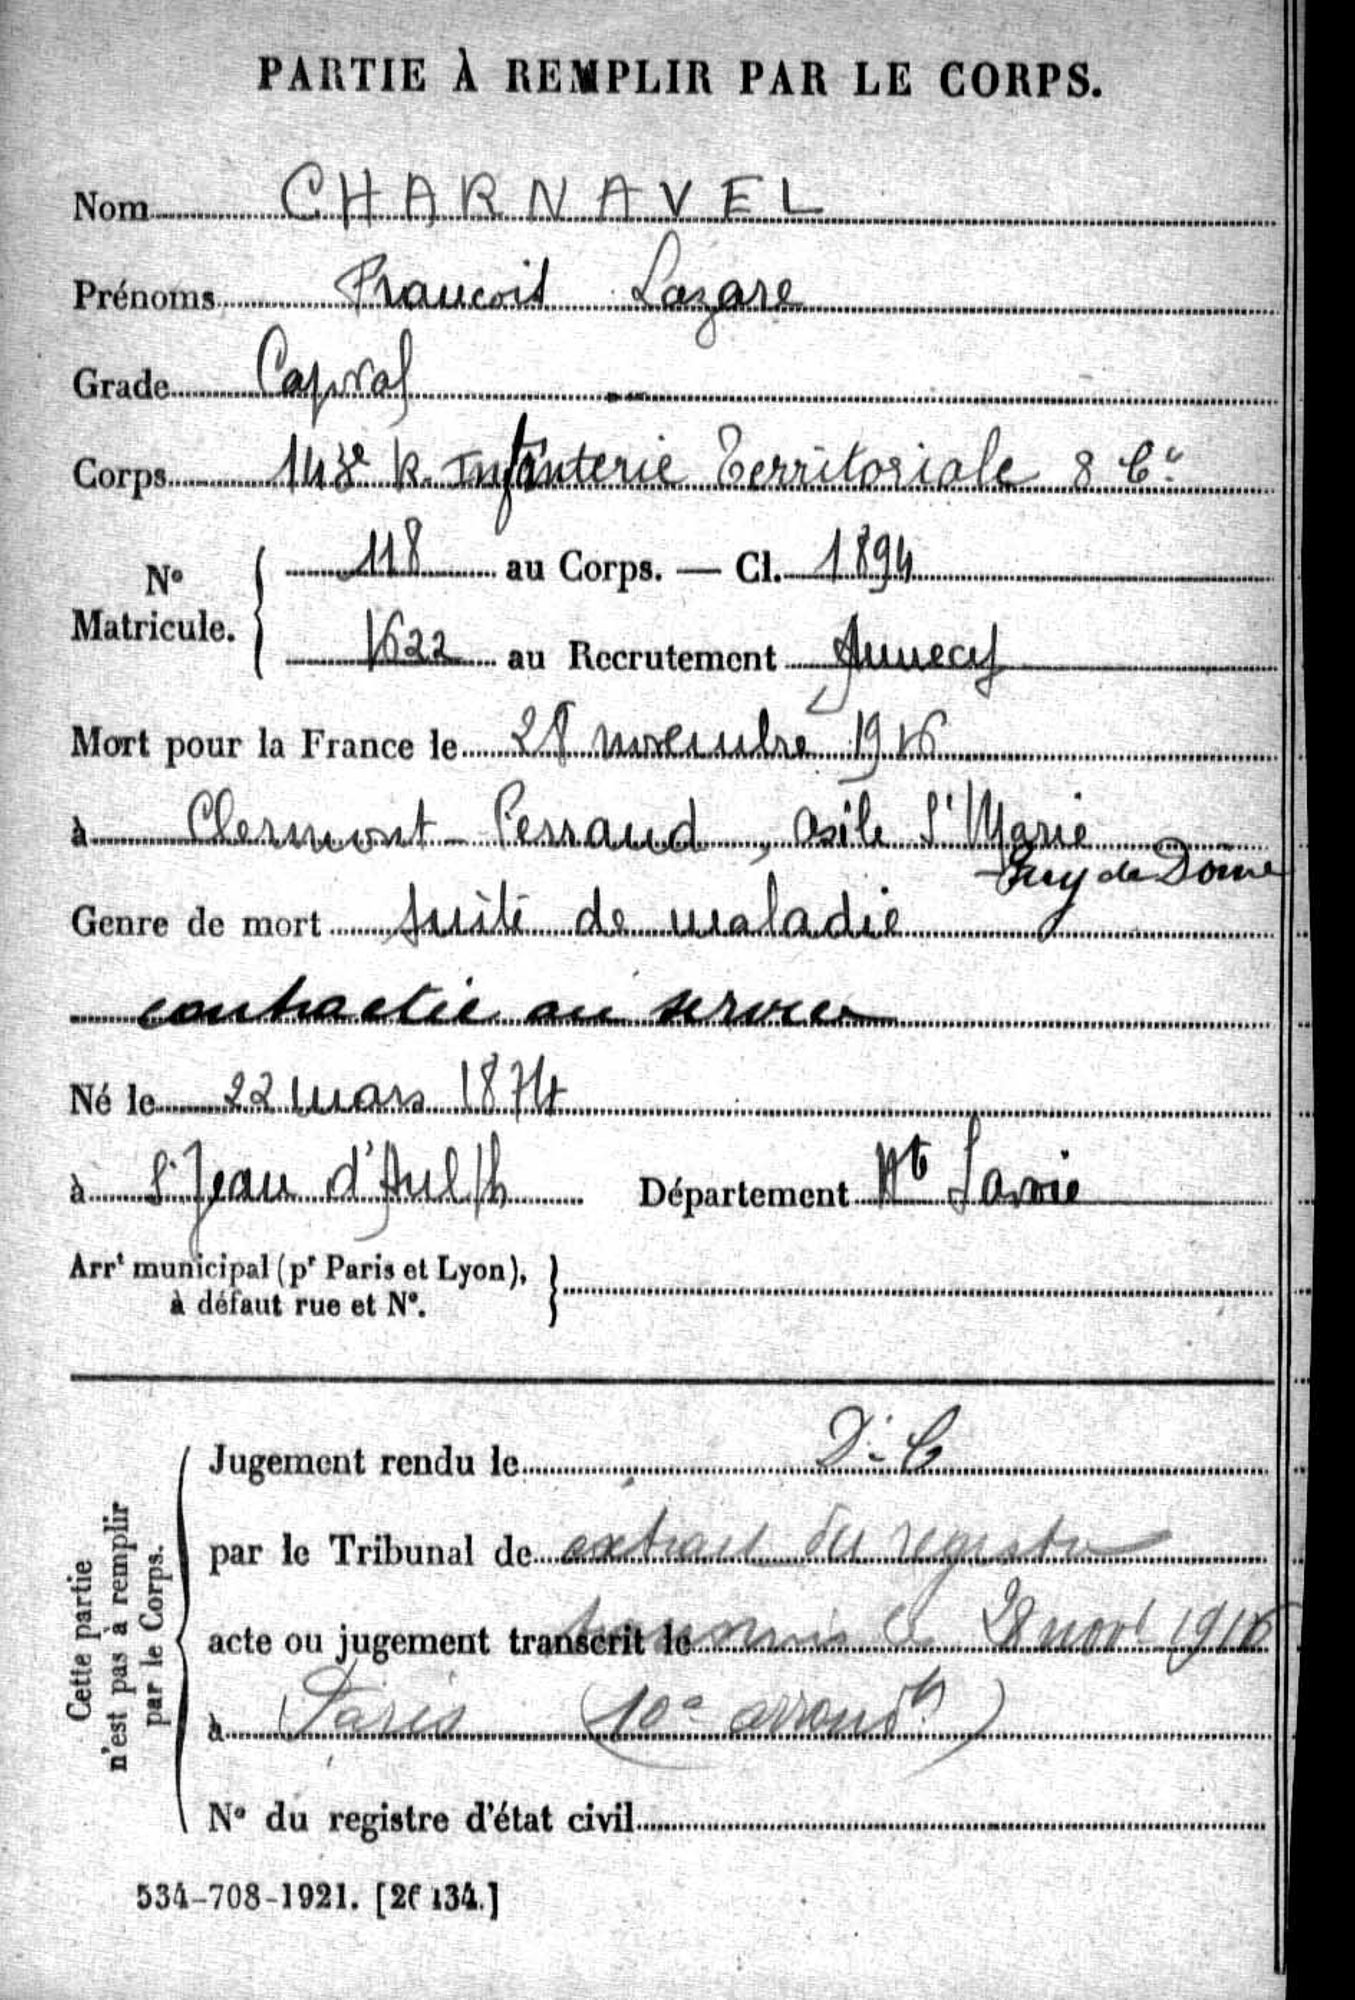 PARTIE À REMPLIR PAR LE CORPS.
Nom CHARNAVEL
Prénoms François Lazare
Grade Caporal
Corps 148e R. Infanterie Territoriale 8 Cie
No Matricule. { 118 au Corps. — Cl. 1894
1622 au Recrutement Annecy
Mort pour la France le 28 novembre 1916
à Clermont-Ferrand, asile St Marie
Puy de Dôme
Genre de mort suite de maladie
contractée au service
Né le 22 mars 1874
à St Jean d'Aulph Département Hte Savoie
Arrt municipal (pr Paris et Lyon), à défaut rue et No. }
Cette partie n'est pas à remplir par le Corps.
Jugement rendu le D. C
par le Tribunal de extrait du registre
acte ou jugement transcrit le transmis le 28 novt 1916
à Paris (10e arrondt)
No du registre d'état civil
534-708-1921. [26134.]